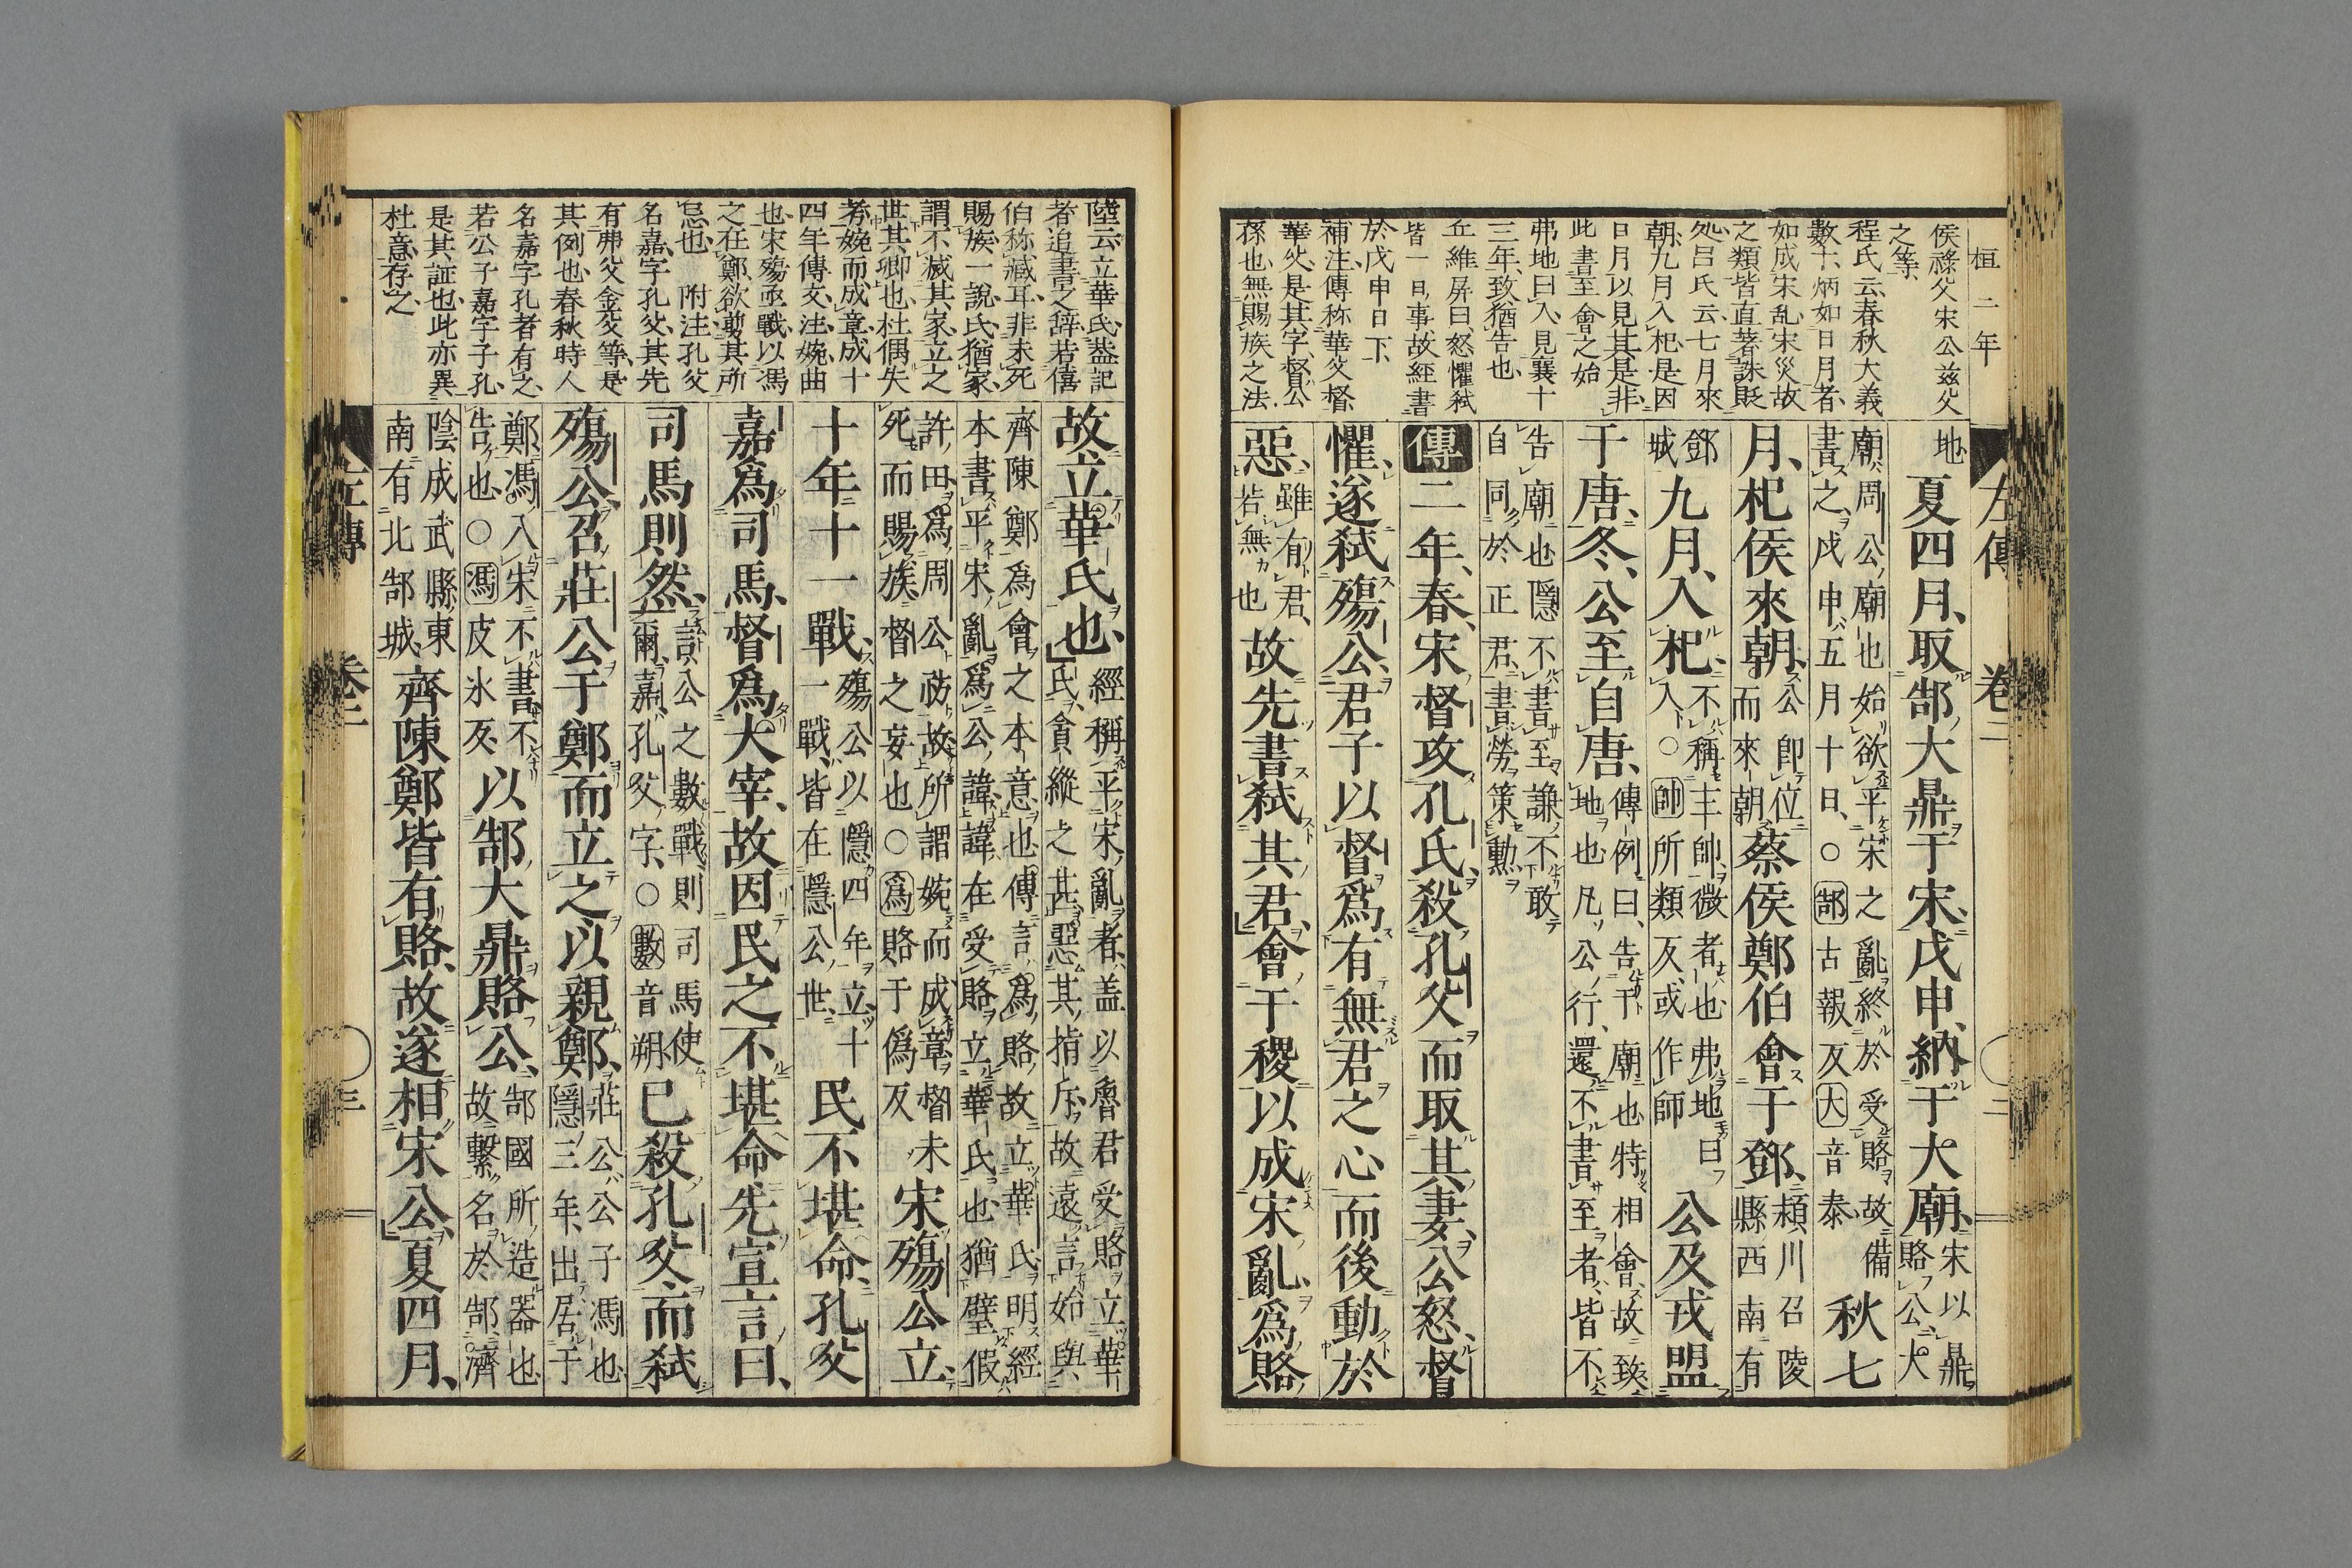 桓二年
左傳 卷二 二
侯祿父宋公茲父
之等
程氏云春秋大義
數十炳如日月者
如成宋乱宋災故
之類皆直著誅貶
処呂氏云七月來
朝九月入杞是因
日月以見其是非
此書至會之始
弗地曰入見襄十
三年致猶告也
丘維屏曰怒懼弑
皆一日事故經書
於戊申日下
補注傳称華父督
華父是其字督公
孫也無賜族之法
地 夏四月、取郜大鼎于宋、戊申、納于大廟、宋以鼎賂公、大
廟周公廟也始欲平宋之亂終於受賂故備書之戊申五月十日、○郜古報反大音泰 秋七
月、杞侯來朝、公即位而來朝 蔡侯鄭伯會于鄧、潁川召陵縣西南有
鄧城 九月、入杞、不稱主帥、微者也弗地曰入○帥所類反、或作師 公及戎盟
于唐、冬、公至自唐、傳例曰、告于廟也特相會、故致地也凡公行、還不書至者、皆不
告廟也隱不書至謙不敢自同於正君書勞策勳
傳 二年、春、宋督攻孔氏、殺孔父而取其妻、公怒、督
懼、遂弑殤公、君子以督爲有無君之心、而後動於
惡、雖有君、若無也 故先書弑其君、會于稷以成宋亂、爲賂
陸云立華氏葢記
者追書之辭若僖
伯称臧耳非未死
賜族一說氏猶家
謂不滅其家立之
世其卿也杜偶失
考婉而成章成十
四年傳文注婉曲
也宋殤亟戰以馮
之在鄭欲剪其所
忌也 附注孔父
名嘉字孔父其先
有弗父金父等是
其例也春秋時人
名嘉字孔者有之
若公子嘉字子孔
是其証也此亦異
杜意存之
故、立華氏也、經稱平宋亂者、盖以魯君受賂立華氏、貪縱之甚惡其指斥、故遠言始與
齊陳鄭爲會之本意也傳言爲賂故立華氏明經本書平宋亂爲公諱諱在受賂立華氏也猶璧假
許田爲周公祊故所謂婉而成章督未死而賜族督之妄也○爲賂于僞反 宋殤公立、
十年十一戰、殤公以隱四年立十一戰、皆在隱公世、 民不堪命、孔父
嘉爲司馬、督爲大宰、故因民之不堪命、先宣言曰、
司馬則然、言公之數戰、則司馬使爾、嘉孔父字、○數音朔 已殺孔父、而弑
殤公、召莊公于鄭而立之、以親鄭、莊公公子馮也隱三年、出居于
鄭、馮入宋不書、不告也○馮皮氷反、以郜大鼎賂公、郜國所造器也故繫名於郜濟
陰成武縣東南有北郜城 齊陳鄭皆有賂、故遂相宋公、夏四月、
左傳 卷二 三